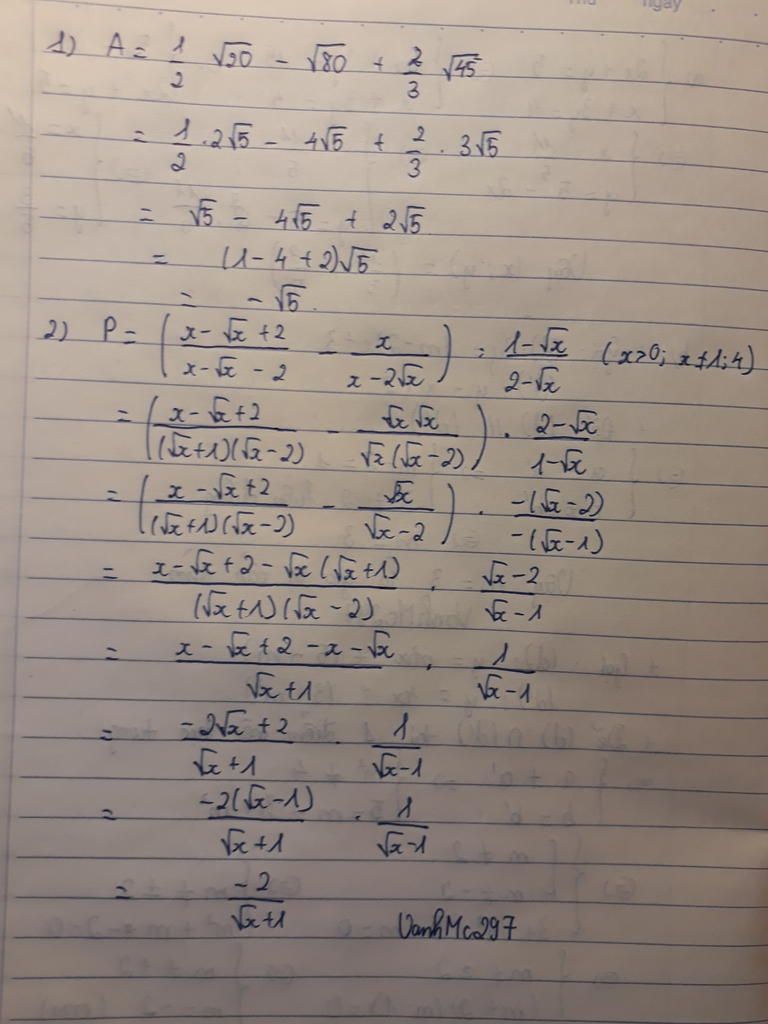 1) A = 1/2 √20 - √80 + 2/3 √45
= 1/2 . 2√5 - 4√5 + 2/3 . 3√5
= √5 - 4√5 + 2√5
= (1 - 4 + 2)√5
= -√5.
2) P = ( (x - √x + 2)/(x - √x - 2) - x/(x - 2√x) ) : (1 - √x)/(2 - √x) (x>0; x≠1;4)
= ( (x - √x + 2)/((√x+1)(√x-2)) - (√x√x)/(√x(√x-2)) ) . (2-√x)/(1-√x)
= ( (x - √x + 2)/((√x+1)(√x-2)) - √x/(√x-2) ) . (-(√x-2))/(-(√x-1))
= (x - √x + 2 - √x(√x+1))/((√x+1)(√x-2)) . (√x-2)/(√x-1)
= (x - √x + 2 - x - √x)/(√x+1) . 1/(√x-1)
= (-2√x + 2)/(√x+1) . 1/(√x-1)
= (-2(√x-1))/(√x+1) . 1/(√x-1)
= -2/(√x+1)
VanhMc297